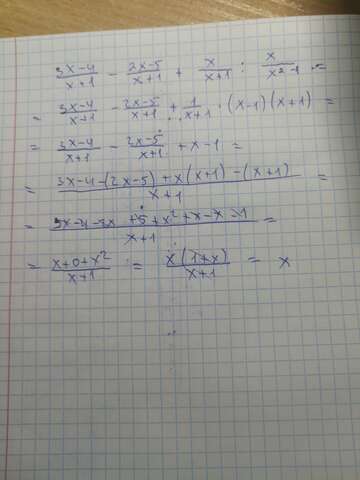 (3x-4)/(x+1) - (2x-5)/(x+1) + x/(x+1) : x/(x²-1) =
= (3x-4)/(x+1) - (2x-5)/(x+1) + 1/(x+1) · (x-1)(x+1) =
= (3x-4)/(x+1) - (2x-5)/(x+1) + x-1 =
= (3x-4-(2x-5)+x(x+1)-(x+1))/(x+1) =
= (3x-4-2x+5+x²+x-x-1)/(x+1) =
= (x+0+x²)/(x+1) = x(1+x)/(x+1) = x